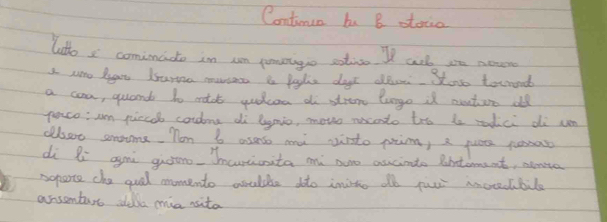 Continua tu la storia
Tutto è cominciato in un pomeriggio estivo. Il cielo era sereno
e una legera brezza muoveva le foglie degli alberi. Stavo tornando
a casa, quando ho notato qualcosa di strano lungo il sentiero del
parco: un piccolo cordone di legno, mezzo nascosto tra le radici di un
albero enorme. Non l'avevo mai visto prima, e pure passavo
di lì ogni giorno. Incuriosita mi sono avvicinata lentamente, senza
sapere che quel momento avrebbe dato inizio alla più incredibile
avventura della mia vita